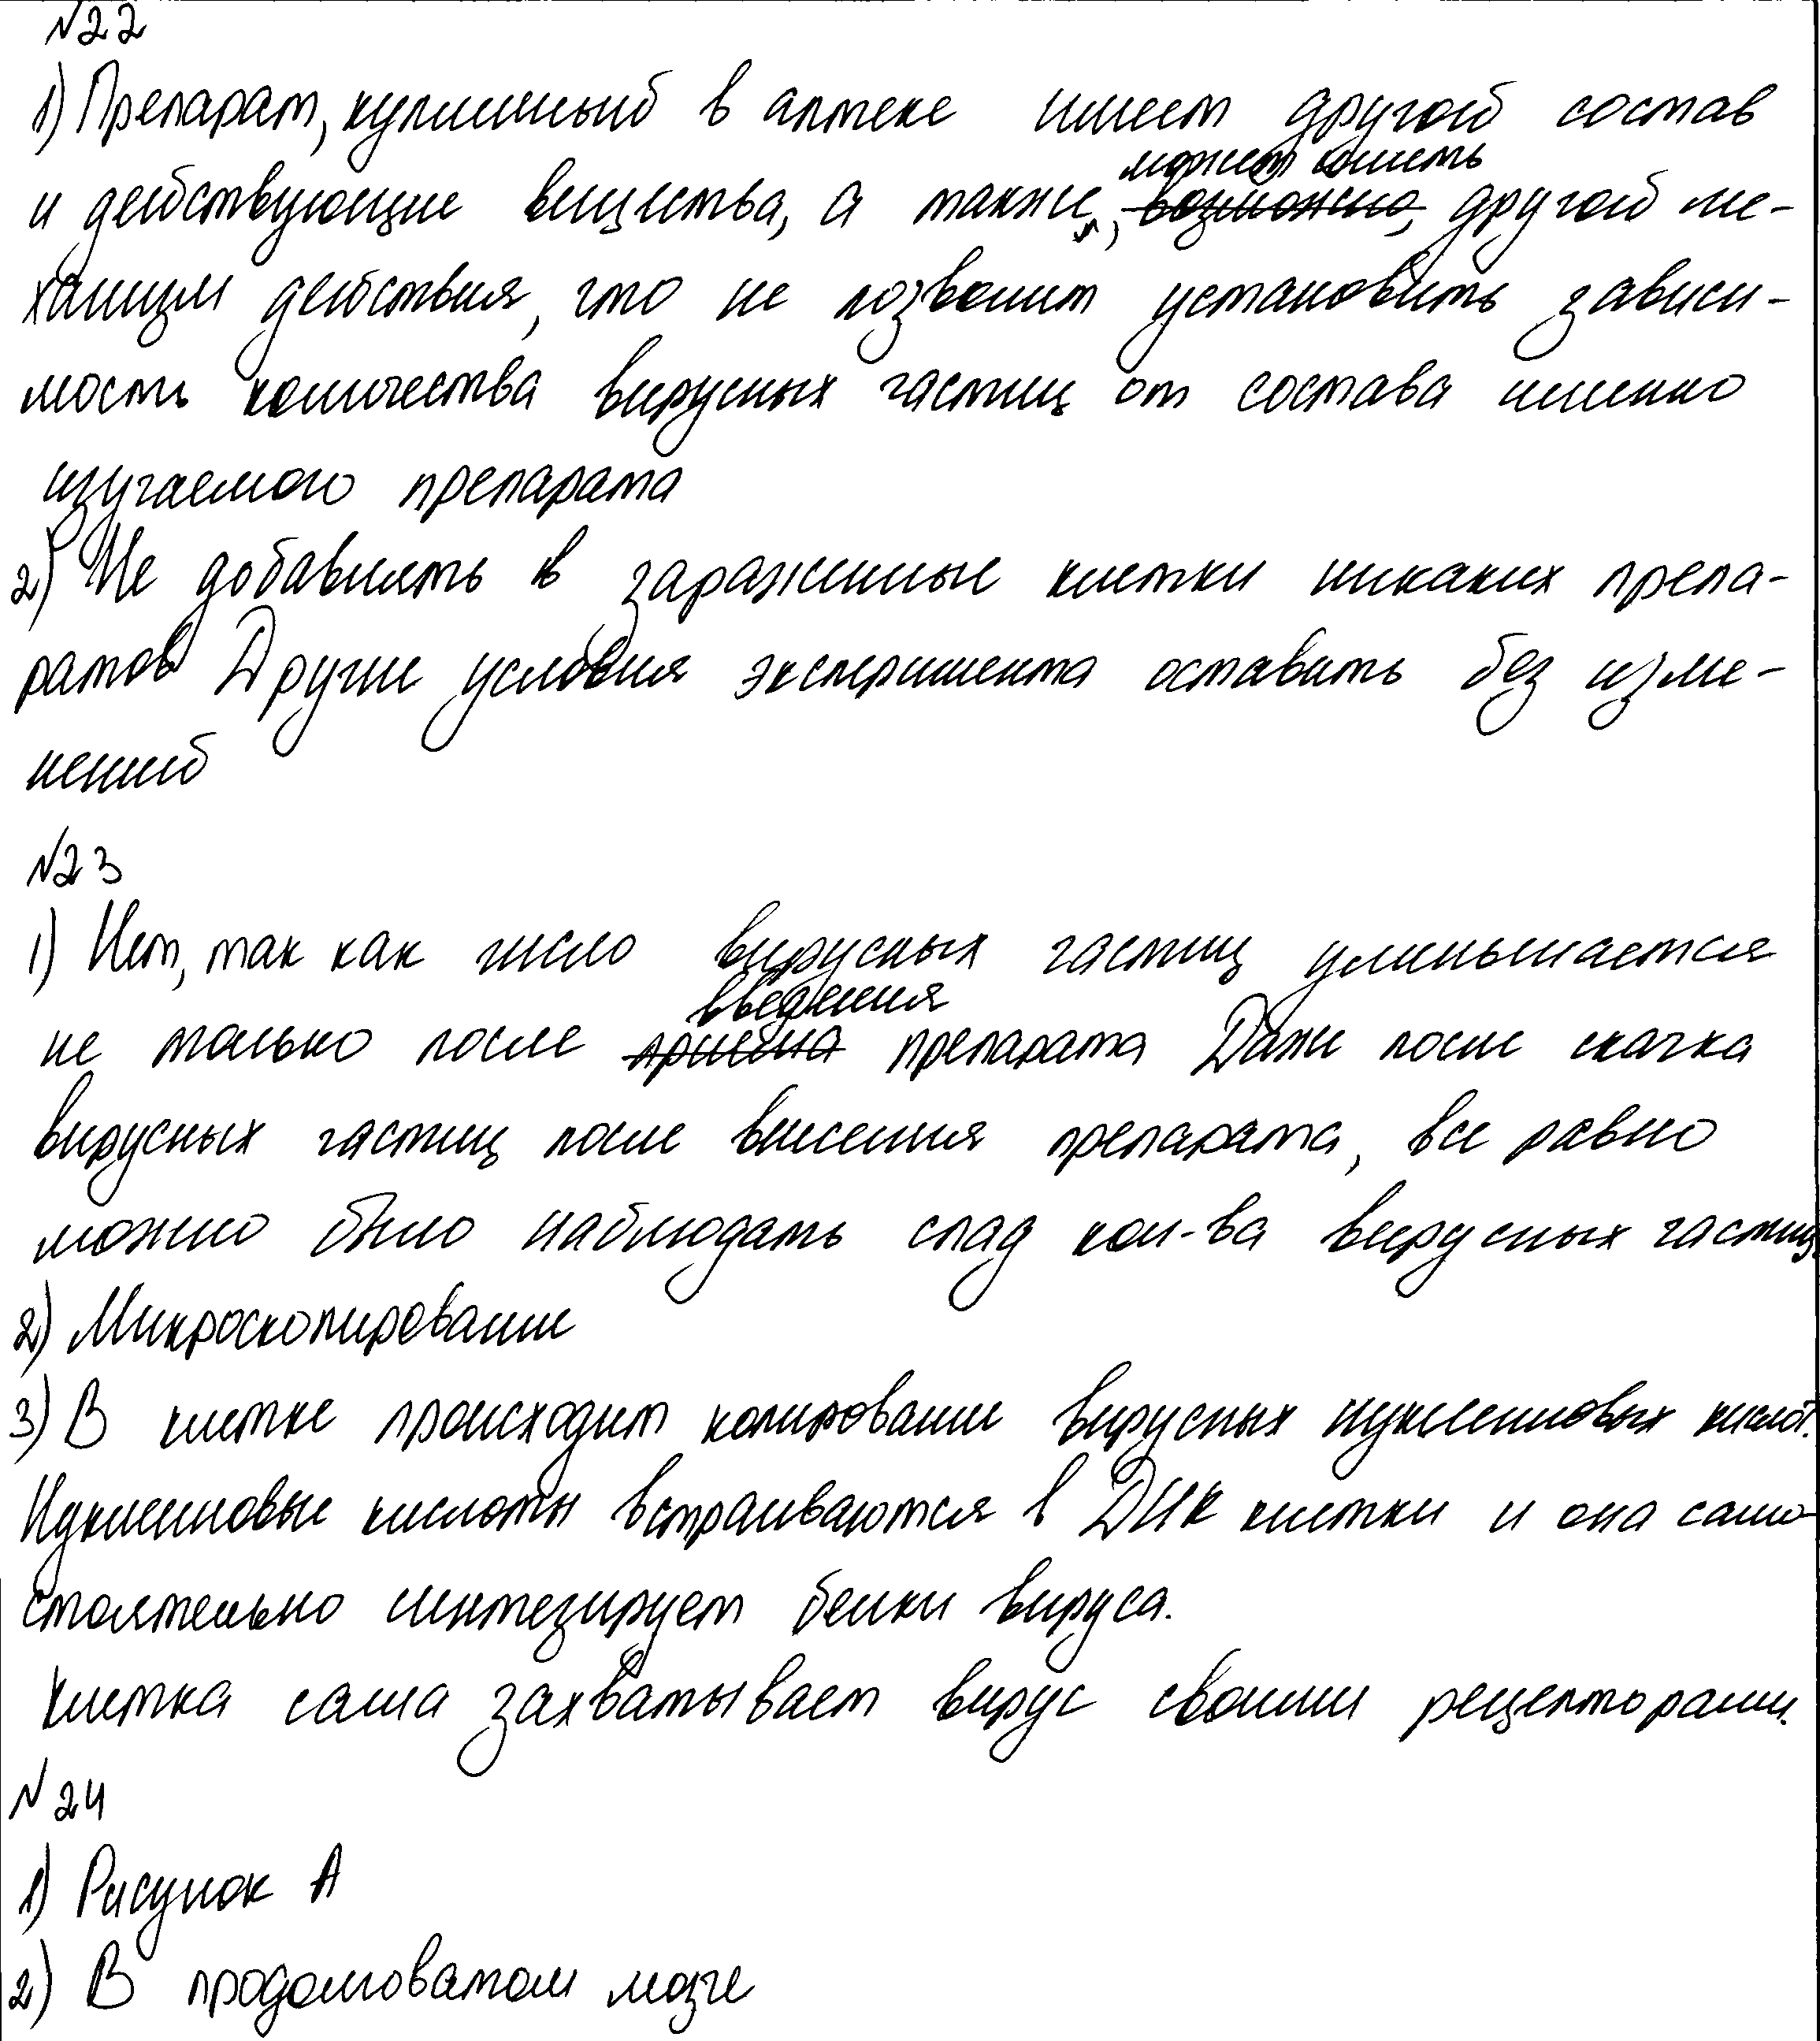 №22
1) Препарат, купленный в аптеке имеет другой состав
может иметь
и действующие вещества, а также, возможно, другой ме-
ханизм действия, что не позволит установить зависи-
мость количества вирусных частиц от состава именно
изучаемого препарата
2) Не добавлять в зараженные клетки никаких препа-
ратов Другие условия эксперимента оставить без изме-
нений
№23
1) Нет, так как число вирусных частиц уменьшается
введения
не только после приёма препарата Даже после скачка
вирусных частиц после внесения препарата, все равно
можно было наблюдать спад кол-ва вирусных частиц
2) Микроскопирование
3) В клетке происходит копирование вирусных нуклеиновых кислот.
Нуклеиновые кислоты встраиваются в ДНК клетки и она само-
стоятельно синтезирует белки вируса.
Клетка сама захватывает вирус своими рецепторами.
№24
1) Рисунок А
2) В продолговатом мозге